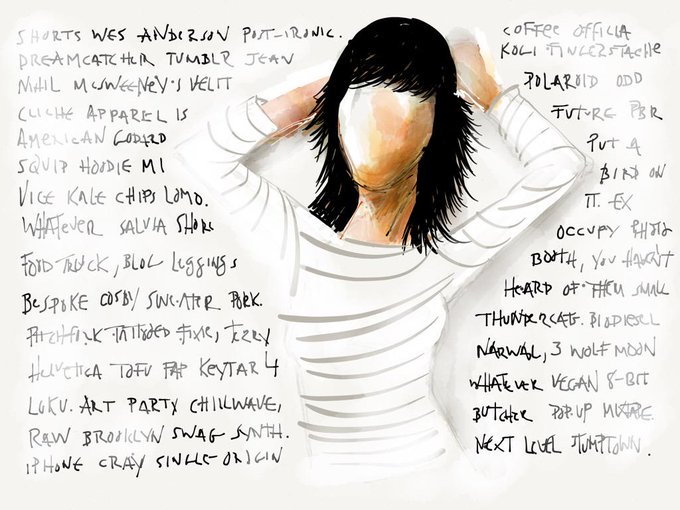 SHORTS WES ANDERSON POST-IRONIC.
DREAMCATCHER TUMBLR JEAN
NIHIL MCSWEENEY'S VELIT
CLICHE APPAREL IS
AMERICAN GODARD
SQUID HOODIE MI
VICE KALE CHIPS LOMO.
WHATEVER SALVIA SHORE
FOOD TRUCK, BLOG LEGGINGS
BESPOKE COSBY SWEATER PORK.
PITCHFORK TATTOOED FIXIE, TERRY
HELVETICA TOFU FAP KEYTAR 4
LOKO. ART PARTY CHILLWAVE,
RAW BROOKLYN SWAG SYNTH.
IPHONE CRAY SINGLE-ORIGIN
COFFEE OFFICIA
KOGI FINGERSTACHE
POLAROID ODD
FUTURE PBR
PUT A
BIRD ON
IT. EX
OCCUPY PHOTO
BOOTH, YOU HAVEN'T
HEARD OF THEM SMALL
THUNDERCATS. BIODIESEL
NARWAL, 3 WOLF MOON
WHATEVER VEGAN 8-BIT
BUTCHER POP-UP MIXTAPE.
NEXT LEVEL STUMPTOWN.